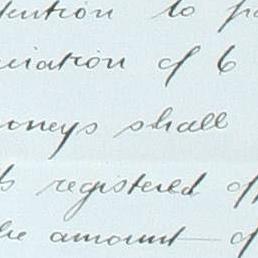 tention to pa
ciation of 6
moneys shall
registered of
he amount of